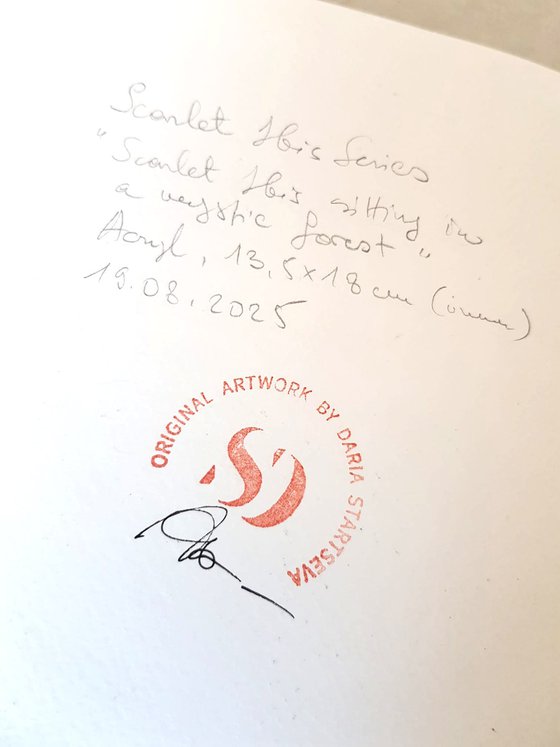 Scarlet Ibis Series
"Scarlet Ibis sitting in
a mystic forest"
Acryl, 13,5x18cm (inner)
19.08.2025
ORIGINAL ARTWORK BY DARIA STARTSEVA